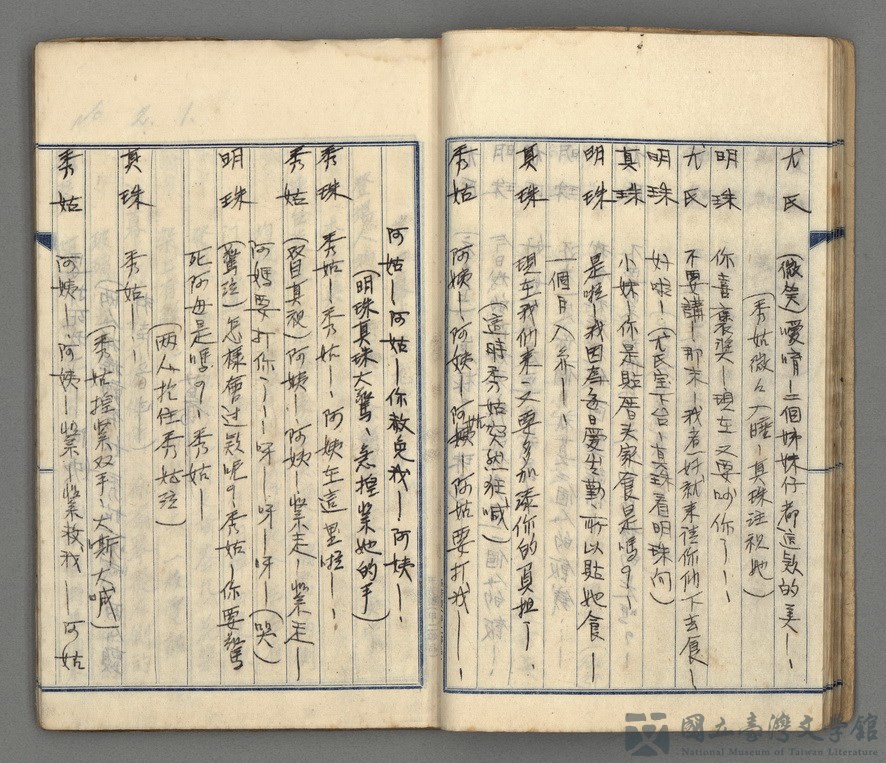 尤氏 (微笑)噯唷—二個姊妹仔都這款的美—、
(秀姑微々入睡—真珠注視她)
明珠 你喜褒獎—現在又要吵你了—、
尤氏 不要講—那末—我煮好就來徃你们下去食—
明珠 好啦—(尤氏室下台—真珠看明珠问)
真珠 小妹—你是貼厝头家食是嗎?—
明珠 是啦—我因為每日愛生勤、所以貼她食—
一個月入 —、
真珠 現在我们來—又要多加添你的負担了—、
(這時秀姑突然狂喊)
秀姑 阿姨—阿姨—阿姨—阿姑要打我—、
阿姑—阿姑—你救免我—阿姨—、
(明珠真珠大驚、急捏緊她的手)
秀珠 秀姑—秀姑—阿姨在這里啦—、
秀姑 (貿真視)阿姨—阿姨—緊走—緊走—
阿媽要打你了—呀—呀—呀—(哭)
明珠 (驚泣)怎樣會这款呢?秀姑—你要驚
死阿母是嗎?—秀姑—
(兩人抱住秀姑泣)
真珠 秀姑—、
(秀姑捏緊双手、大嘶大喊)
秀姑 阿姨—阿姨—緊—緊救我—阿姑
No 2. 1.
國立臺灣文學館
National Museum of Taiwan Literature